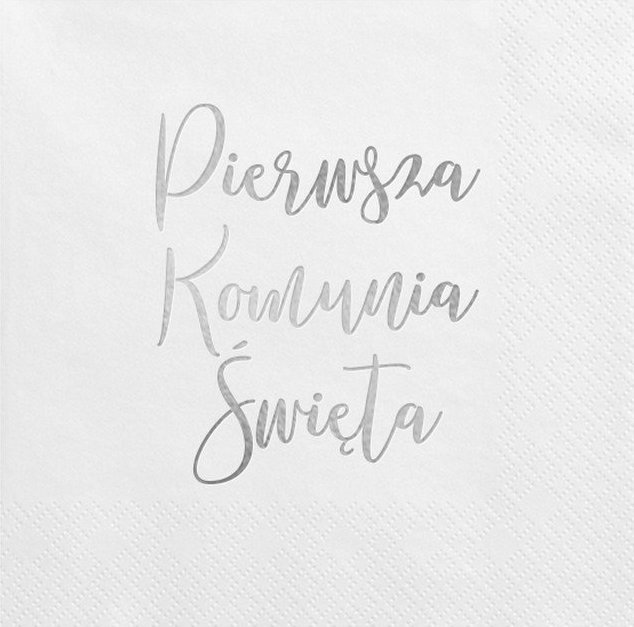 Pierwsza
Komunia
Święta